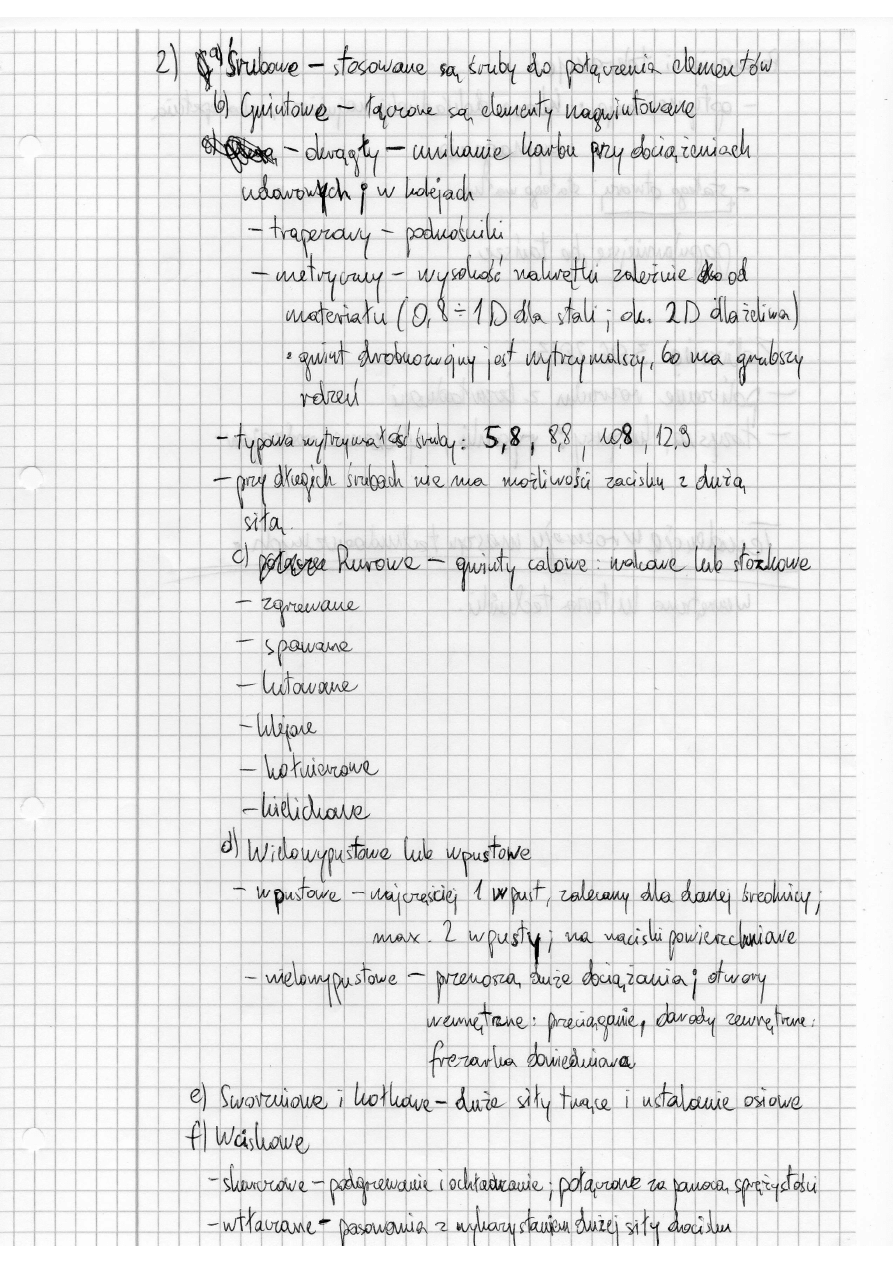 2) a) Śrubowe – stosowane są śruby do połączenia elementów
b) Gwintowe – łączone są elementy nagwintowane
– okrągły – unikanie karbu przy dociążeniach
udarowych; w kolejach
– trapezowy – podnośniki
– metryczny – wysokość nakrętki zależnie od
materiału (0,8 ÷ 1D dla stali; ok. 2D dla żeliwa)
• gwint drobnozwojny jest wytrzymalszy, bo ma grubszy
rdzeń
– typowa wytrzymałość śruby: 5,8, 8,8, 10,8, 12,9
– przy długich śrubach nie ma możliwości zacisku z dużą
siłą.
c) Rurowe – gwinty calowe: walcowe lub stożkowe
– zgrzewane
– spawane
– lutowane
– klejone
– kołnierzowe
– kielichowe
d) Wielowypustowe lub wpustowe
– wpustowe – najczęściej 1 wpust, zalecany dla danej średnicy;
max. 2 wpusty; na naciski powierzchniowe
– wielowypustowe – przenoszą duże dociążania; otwory
wewnętrzne: przeciąganie, zewnętrzne:
frezarka obwiedniowa
e) Sworzniowe i kołkowe – duże siły tnące i ustalanie osiowe
f) Wciskowe
– skurczowe – podgrzewanie i ochładzanie; połączone za pomocą sprężystości
– wtłaczane – pasowania z wykorzystaniem dużej siły docisku